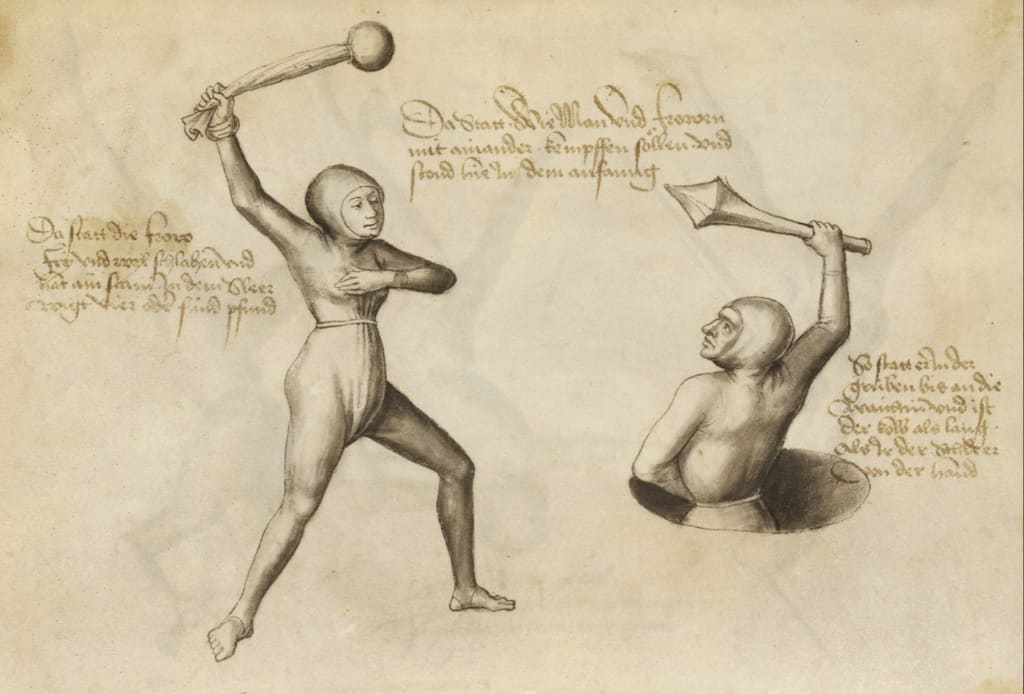 Da Statt Wie Man und frowen
mit ainander kempffen söllen und
stond hie in dem anfang
Da statt die frow
fry und wyl schlahen und
hat ain stain in dem Sleer
wigt vier oder fünf pfund
So statt er in der
gruben bis an die
waichin und ist
der kolb als lang
als ir der Schleer
von der hand